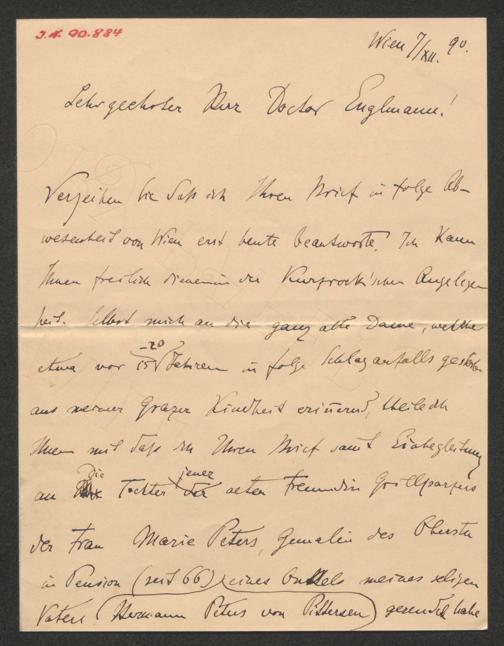 J.N. 90.884
Wien 7/XII. 90.
Sehr geehrter Herr Doctor Englmann!
Verzeihen Sie daß ich Ihren Brief in folge Ab-
wesenheit von Wien erst heute beantworte. Ich kann
Ihnen freilich dienen in der Angelegen
heit. Selbst mich an die ganz alte Dame, welche
etwa vor 15-20 Jahren in folge Schlaganfalls gestorben
aus meiner Grazer Kindheit erinnernd, theile ich
Ihnen mit daß ich Ihren Brief samt Einbegleitung
an die Tochter jener alten Freundin Grillparzers
der Frau Marie Peters, Gemalin des Oberstn
in Pension (seit 66) eines Onkels meines seligen
Vaters (Hermann Peters von Pittersen) gesendet habe